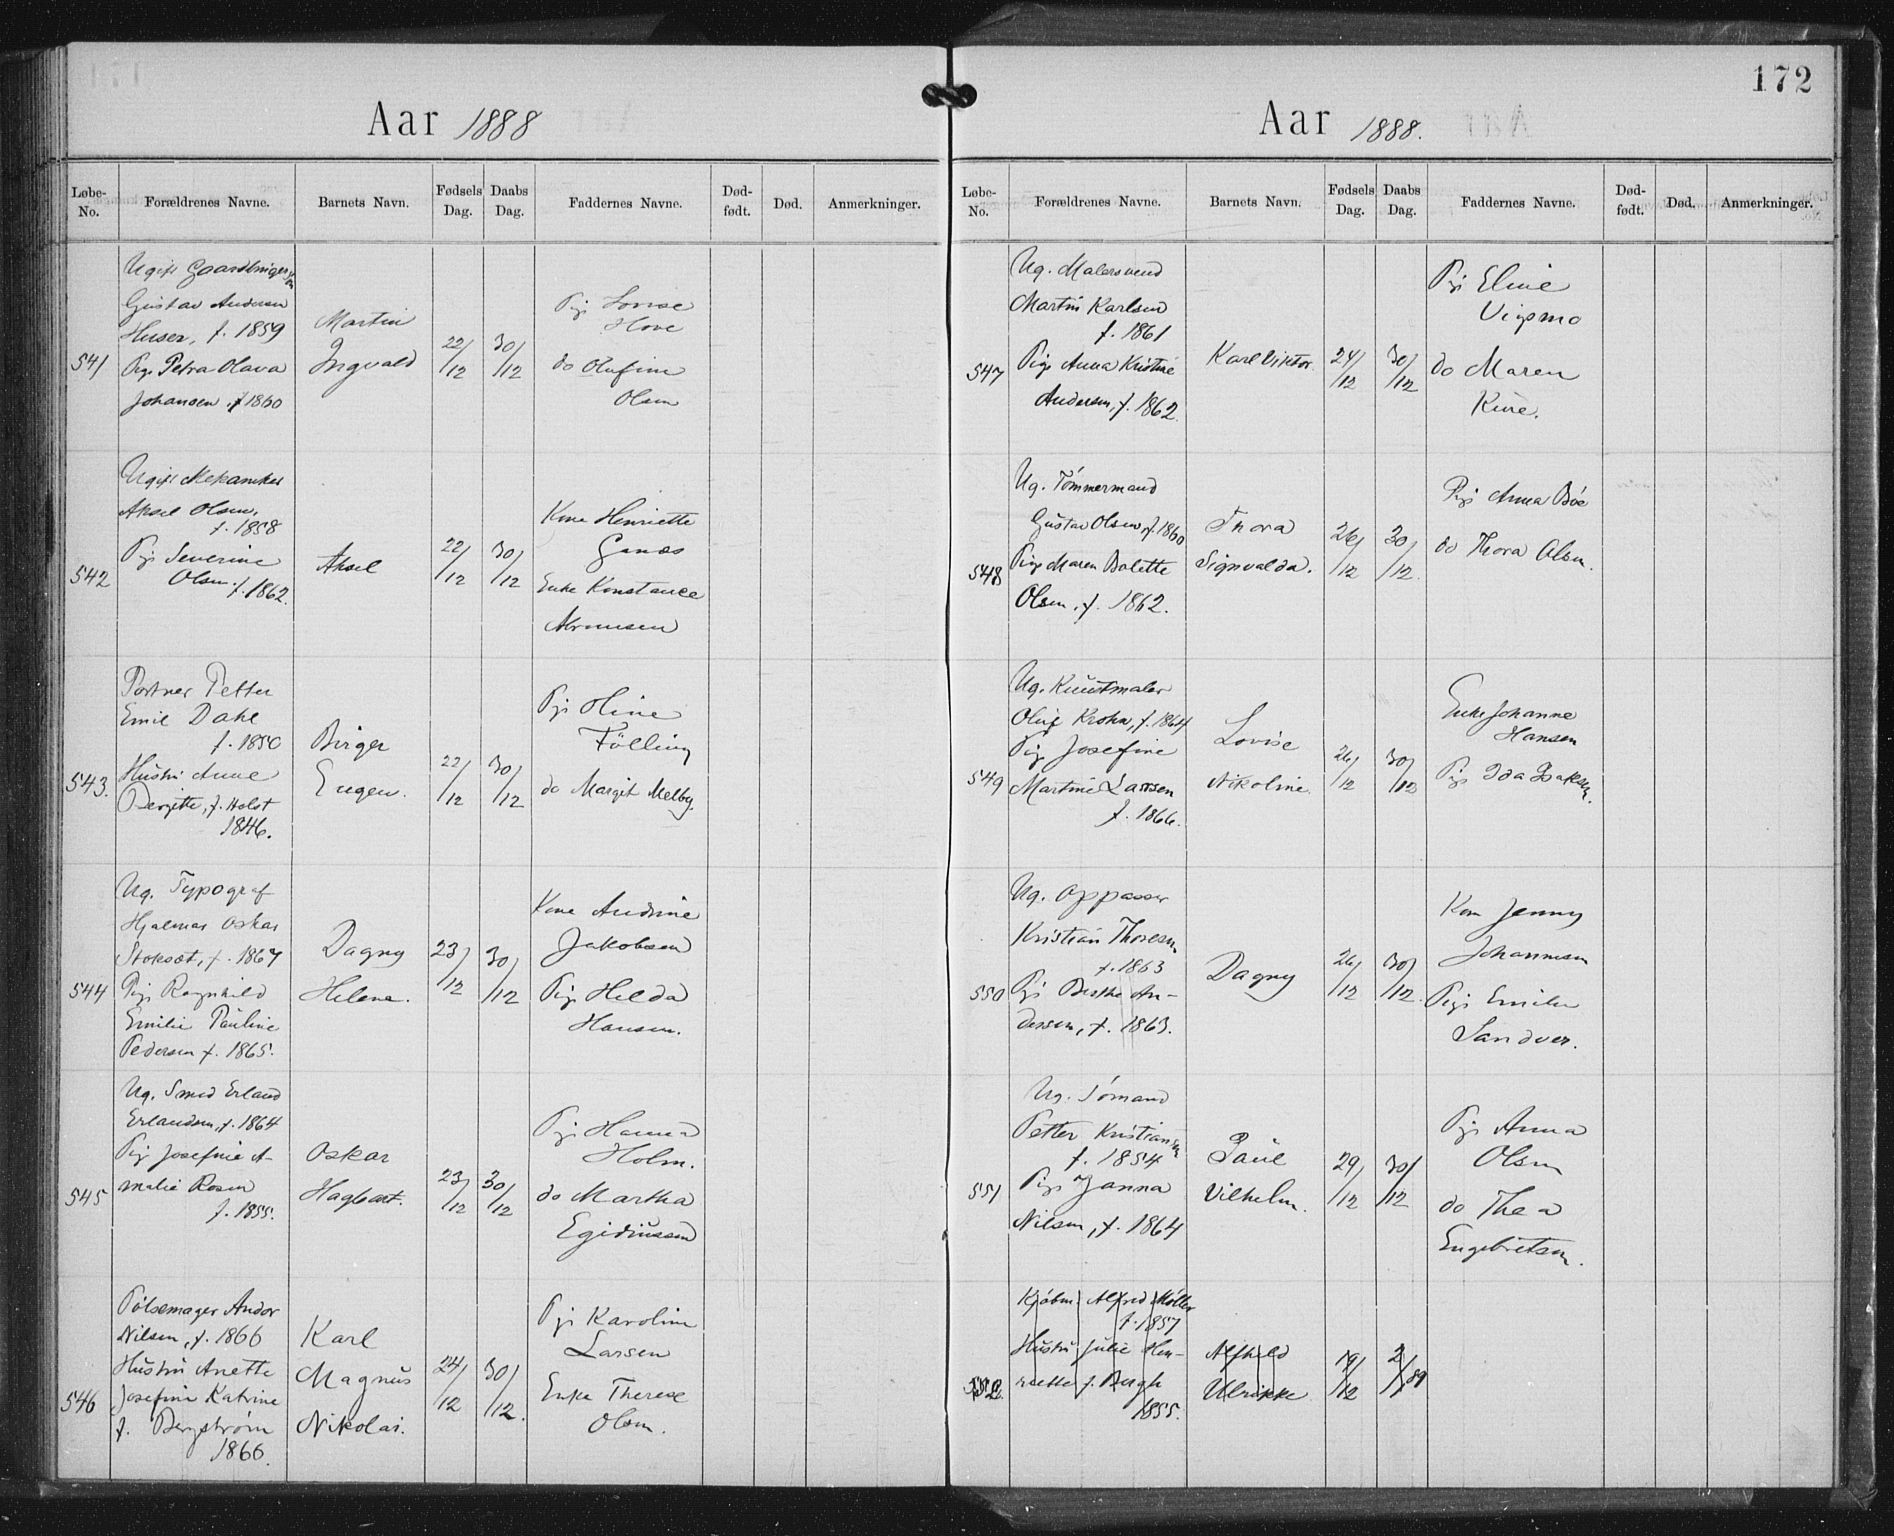 172
Aar 1888
Løbe-No. Forældrenes Navne. Barnets Navn. Fødsels Dag. Daabs Dag. Faddernes Navne. Død-født. Død. Anmerkninger.
Ugift
Gustav Andersen
Huser, f. 1859
541 Pige Petra Olava
Johansen, f 1860
Martin
Ingvald
22/12
30/12
Pige Lovise
Hove
do Olufine
Olsen
Ugift Mekaniker
Aksel Olsen,
f. 1858
542 Pige Severine
Olsen. f. 1862.
Aksel
22/12
30/12
Kone Henriette
Enke Konstance
Portner Petter
Emil Dahl
f. 1850
543. Hustru Anne
Bergitte, f. Holst
1846.
Birger
Eugen.
22/12
30/12
Pige Oline
Fölling
do Margit Melby.
Ug. Typograf
Hjalmar Oskar
f. 1867
544 Pige Ragnhild
Emilie Pauline
Pedersen f. 1865.
Dagny
Helene.
23/12
30/12
Kone Andrine
Jakobsen
Pige Hilda
Hansen.
Ug. Smed Erland
Erlandsen, f. 1864
545 Pige Josefine A-
malie Rosen
f. 1855.
Oskar
Hagbart.
23/12
30/12
Pige Hanna
Holm.
do Martha
Egidiussen
Pølsemager Andor
Nilsen, f. 1866
546 Hustru Anette
Josefine Katrine
f. Bergstrøm
1866.
Karl
Magnus
Nikolai.
24/12
30/12.
Pige Karoline
Larsen
Enke Therese
Olsen.
Aar 1888.
Løbe-No. Forældrenes Navne. Barnets Navn. Fødsels Dag. Daabs Dag. Faddernes Navne. Død-født. Død. Anmerkninger.
Ug. Malersvend
Martin Karlsen
f. 1861
547 Pige Anna Kristine
Andersen, f. 1862.
Karl Viktor
24/12
30/12
Pige Eline
Vigsmo
do Maren
Ug. Tømmermand
Gustav Olsen, f. 1860
548 Pige Maren Bolette
Olsen, f. 1862.
Thora
Signvalda.
26/12
30/12.
Pige Anna Bøe
do Thora Olsen.
Ug. Kunstmaler
Oluf Krohn, f. 1864
549 Pige Josefine
Martine Larsen
f. 1866.
Lovise
Nikoline.
26/12
30/12
Enke Johanne
Hansen
Pige Ida Isaksen.
Ug. Oppasser
Kristian Thoresen
f. 1863
550 Pige Berthe An-
dersen, f. 1863.
Dagny
26/12
30/12.
Kone Jenny
Johannesen
Pige Emilie
Sandver.
Ug. Sømand
Petter Kristiansen
f. 1854
551 Pige Janna
Nilsen, f. 1864
Paul
Vilhelm.
29/12
30/12
Pige Anna
Olsen
do Thea
Engebretsen.
Kjøbm. Alfred Møller
f. 1857
552. Hustru Julie Hen-
riette f. Bergh
1855.
Alfhild
Ulrikke
19/12
2/1 89